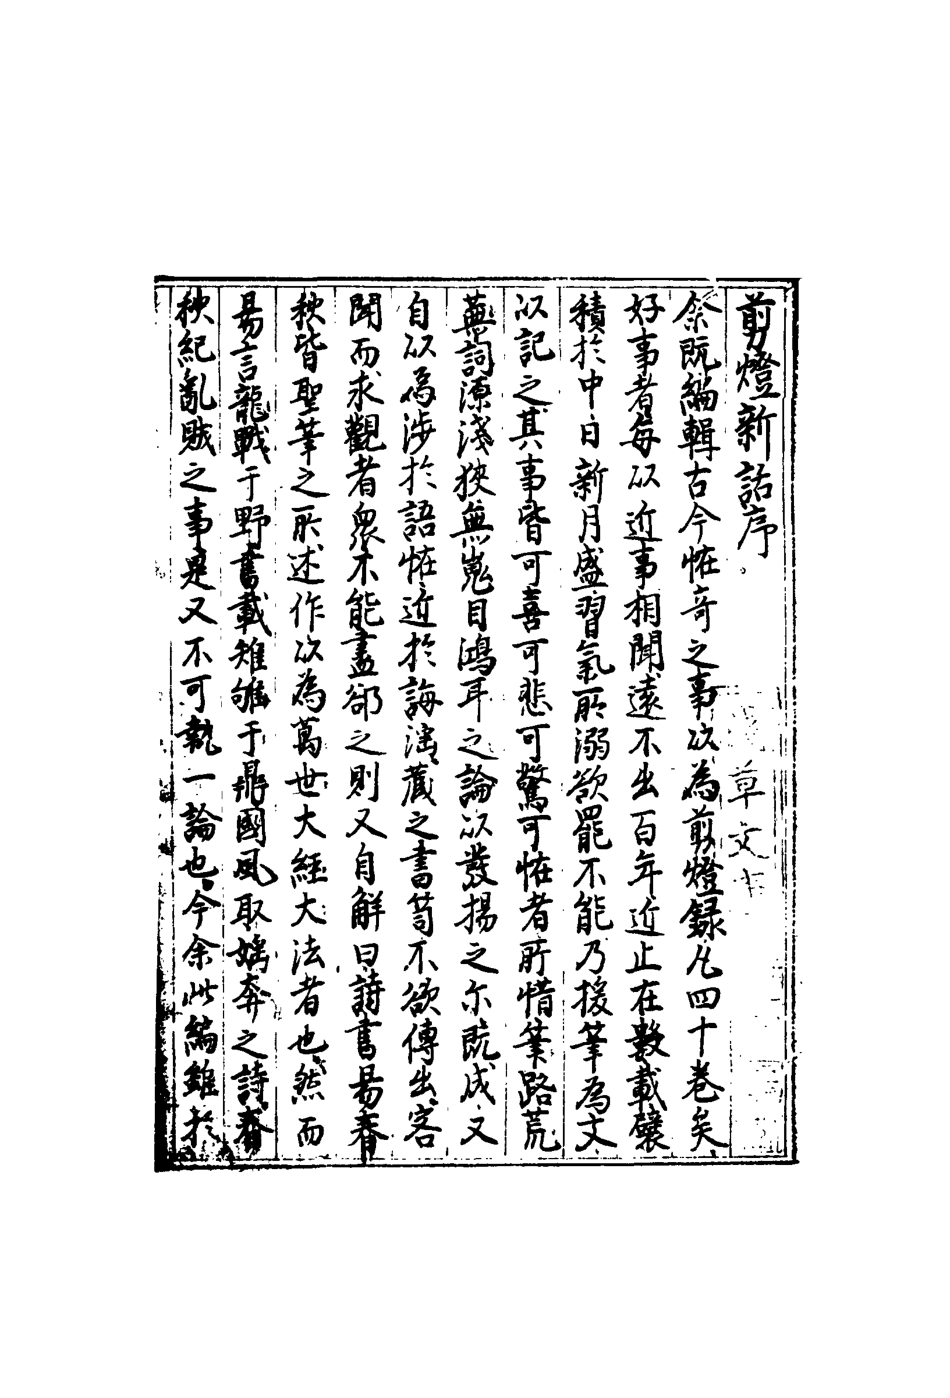 剪燈新話序
余既編輯古今恠奇之事以為剪燈録凡四十卷矣
好事者每以近事相聞遠不出百年近止在數載襞
積於中日新月盛習氣所溺欲罷不能乃援筆為文
以記之其事皆可喜可悲可驚可恠者所惜筆路荒
蕪詞源淺狹無嵬目鴻耳之論以發揚之尔既成又
自以為涉於語恠近於誨淫藏之書笥不欲傳出客
聞而求觀者衆不能盡郤之則又自解曰詩書易春
秋皆聖筆之所述作以為萬世大經大法者也然而
易言龍戰于野書載雉雊于鼎國風取媱奔之詩春
秋紀亂賊之事是又不可執一論也今余此編雖於
章文